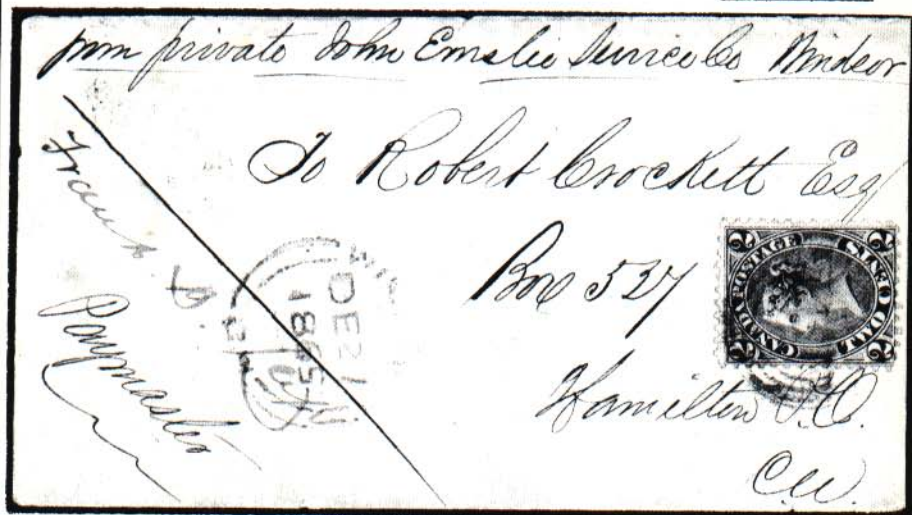 from private John Emslie Service Co Windsor
To Robert Crockett Esq
Box 527
Hamilton P.O.
C.W.
Paymaster
DE 21
1865
CANADA POSTAGE
TWO CENTS
2
2
2
2